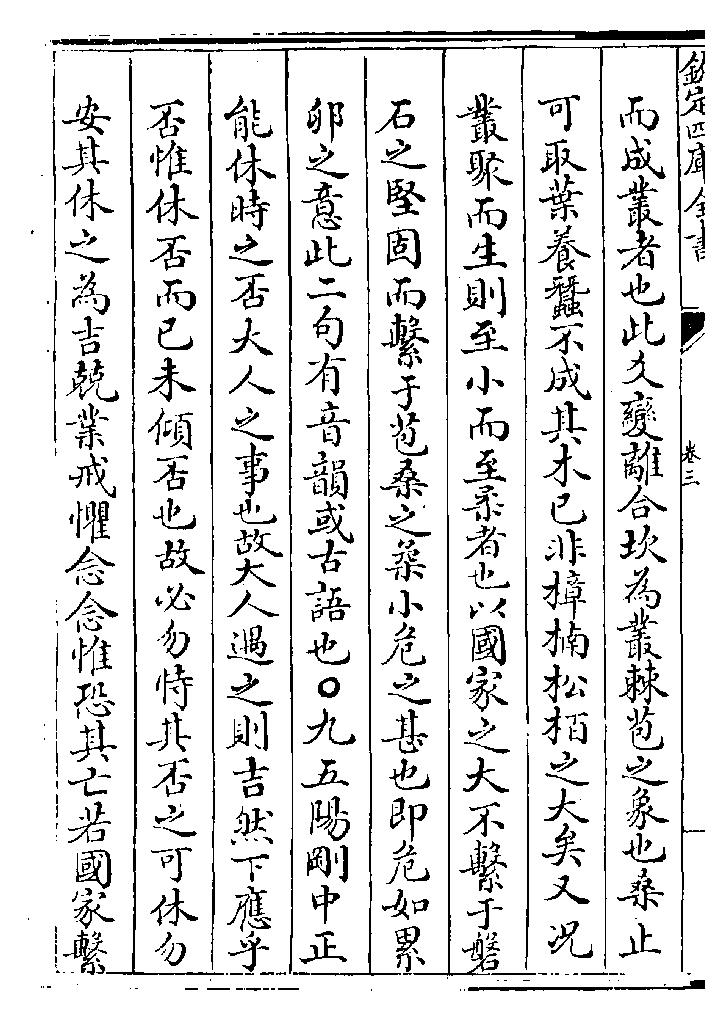 欽定四庫全書
卷三
而成叢者也此爻變離合坎為叢棘苞之象也桑止
可取葉養蠶不成其木已非樟楠松栢之大矣又况
叢聚而生則至小而至柔者也以國家之大不繫于磐
石之堅固而繫于苞桑之桒小危之甚也即危如累
卵之意此二句有音韻或古語也〇九五陽剛中正
能休時之否大人之事也故大人遇之則吉然下應乎
否惟休否而已未傾否也故必勿恃其否之可休勿
安其休之為吉兢業戒懼念念惟恐其亡若國家繫